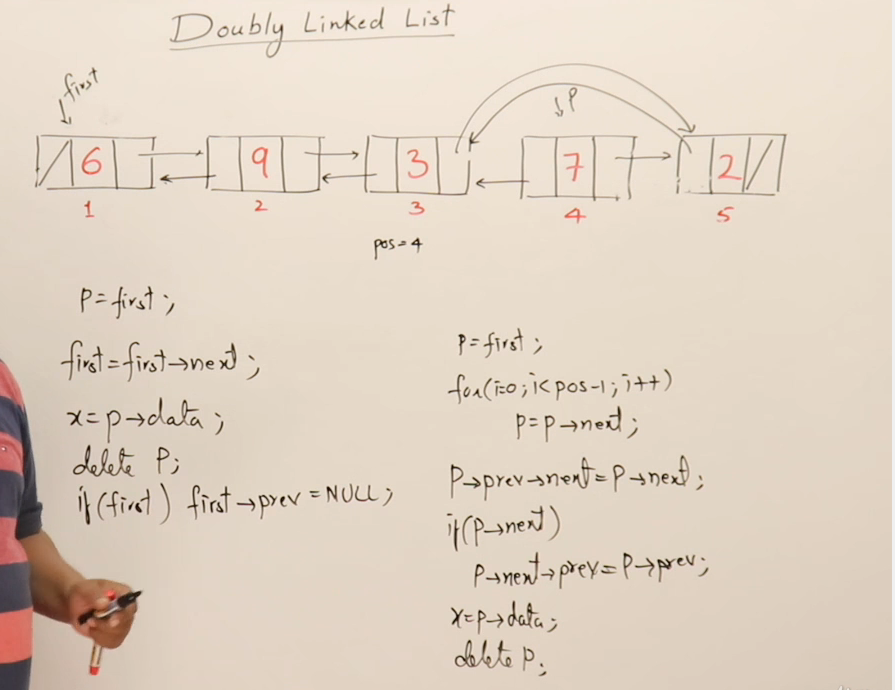 Doubly Linked List
first
P
6 9 3 7 2
1 2 3 4 5
pos=4
P=first;
first=first→next;
x=p→data;
delete P;
if(first) first→prev=NULL;
P=first;
for(i=0;i<pos-1;i++)
P=P→next;
P→prev→next=P→next;
if(P→next)
P→next→prev=P→prev;
x=P→data;
delete P;